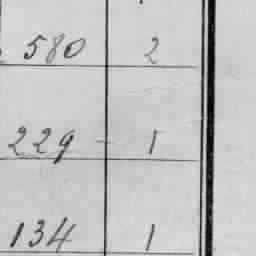 580 2
229 - 1
134 1